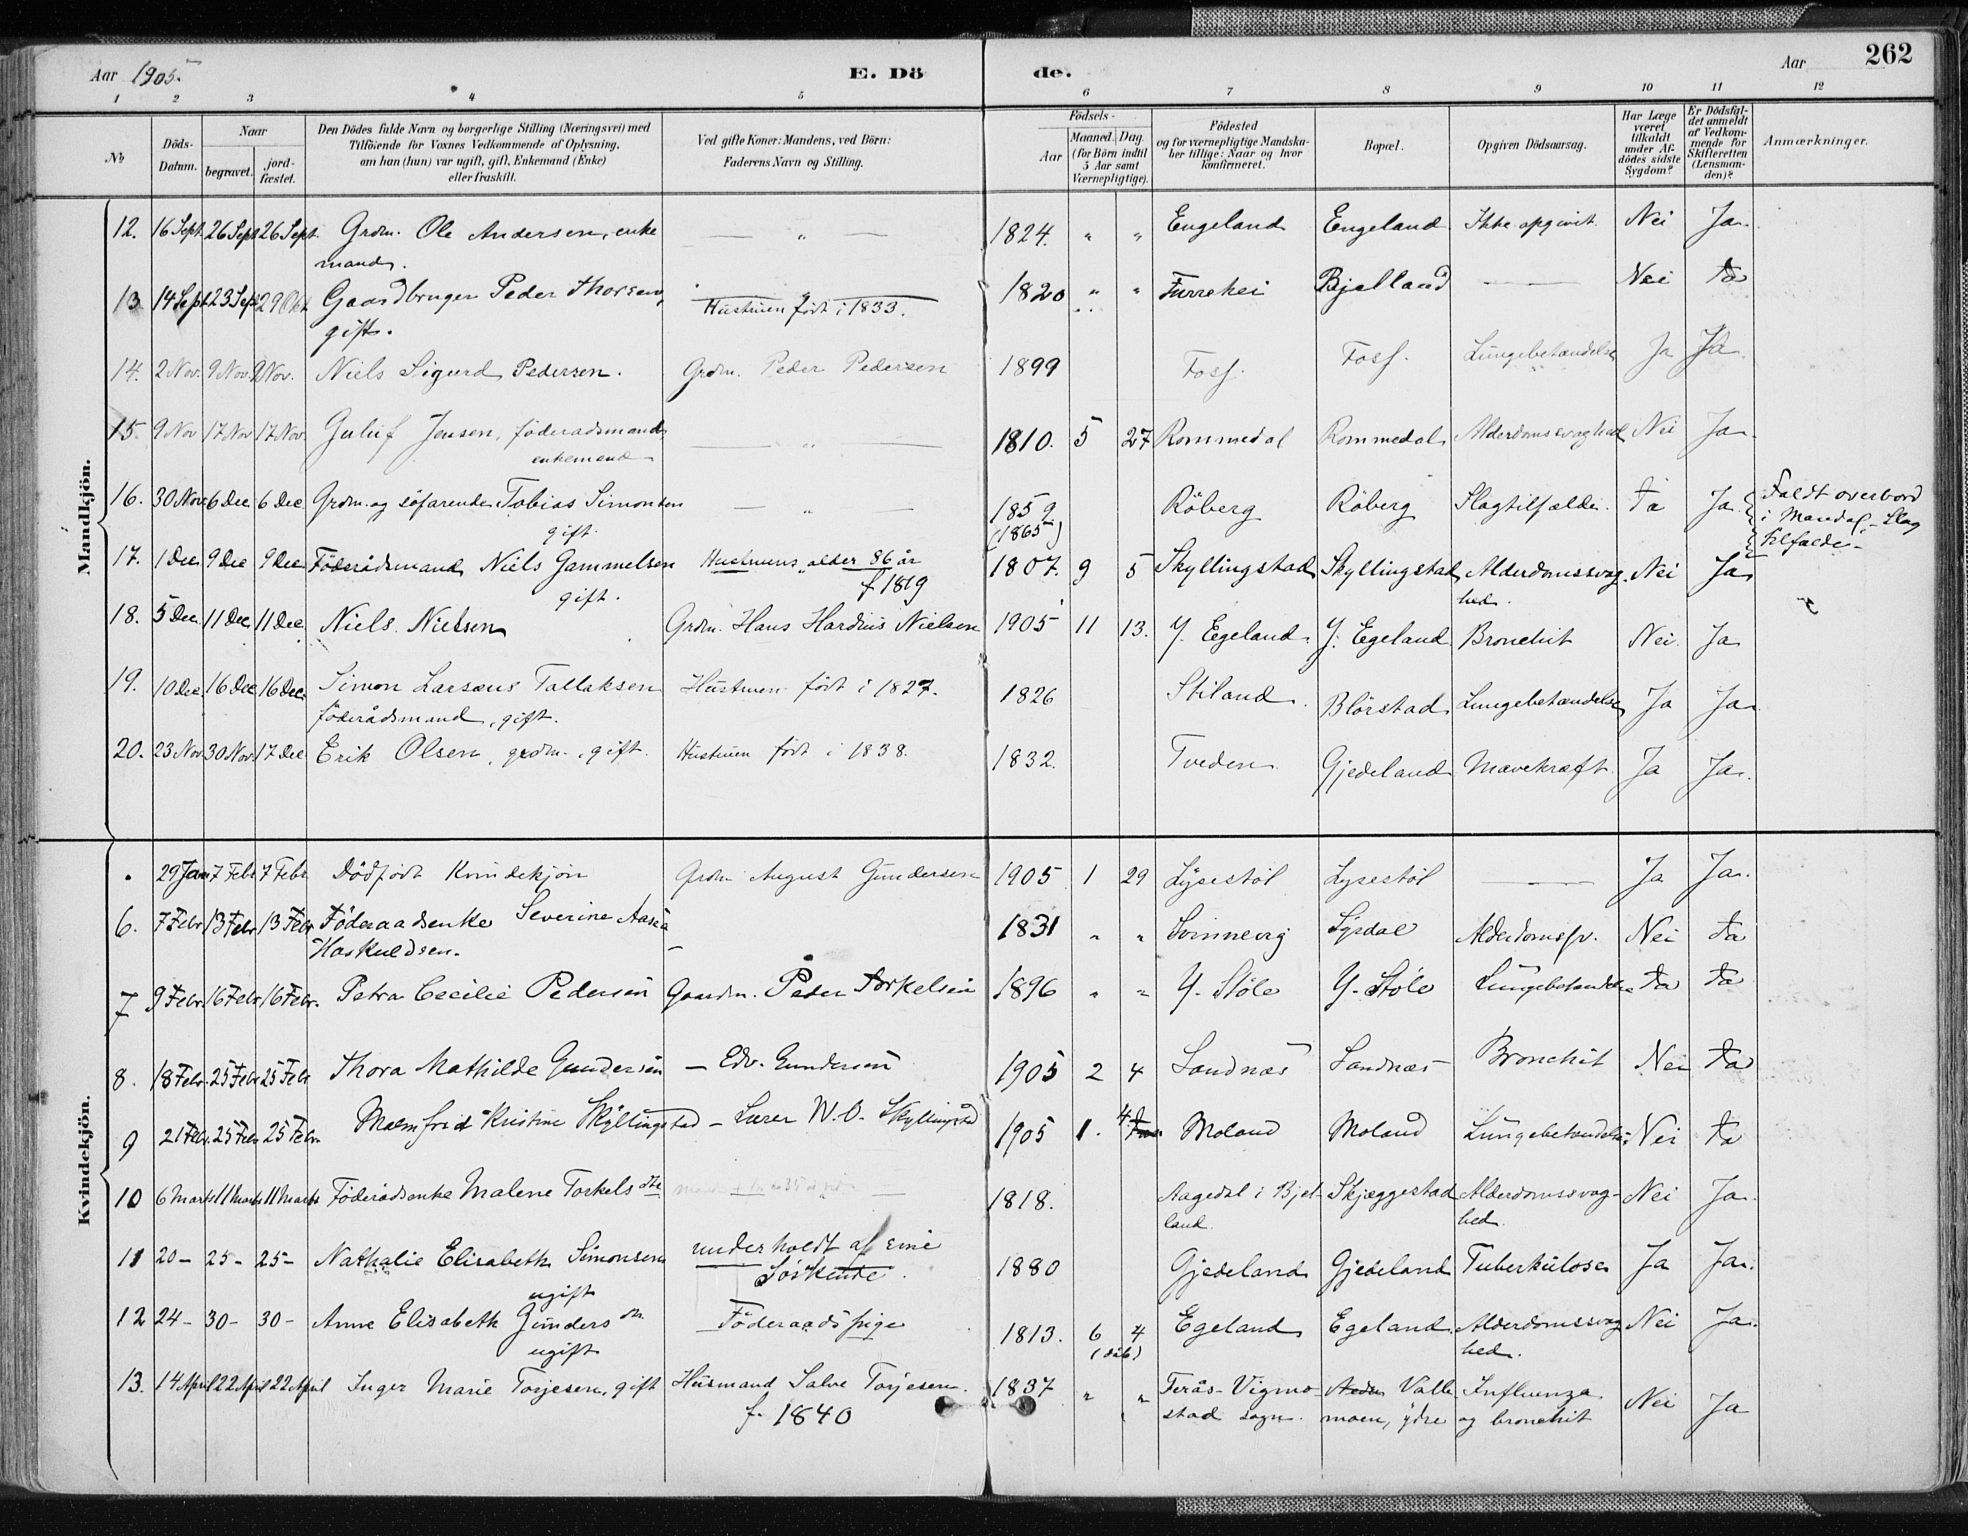 Aar 1905. E. Dö de. Aar 262
1 2 3 4 5 6 7 8 9 10 11 12
№ Döds-Datum. Naar begravet. jord-fæstet. Den Dödes fulde Navn og borgerlige Stilling (Næringsvei) med Tilföiende for Voxnes Vedkommende af Oplysning, om han (hun) var ugift, gift, Enkemand (Enke) eller fraskilt. Ved gifte Koner: Mandens, ved Börn: Faderens Navn og Stilling. Födsels- Aar Maaned. Dag. (for Börn indtil 5 Aar samt Værnepligtige). Födested og for værnepligtige Mandskaber tillige: Naar og hvor konfirmeret. Bopæl. Opgiven Dödsaarsag. Har Læge været tilkaldt under Afdödes sidste Sygdom? Er Dödsfaldet anmeldt af Vedkommende for Skifteretten (Lensmanden)? Anmærkninger.
Mandkjön.
12. 16 Sept. 26 Sept 26 Sept. Grdm. Ole Andersen, enke — " — 1824. " " Engeland Engeland Ikke opgivit. Nei Ja
mand.
13. 14 Sept. 23 Sept 29 Okt Gaardbruger Peder Thorsen, — " — 1820 " " Furrehei Bjelland — Nei Ja
gift. Hustruen født i 1833.
14. 2 Nov. 9 Nov. 9 Nov. Niels Sigurd Pedersen. Grdm. Peder Pedersen 1899 Foss. Foss. Lungebetændelse Ja Ja.
15. 9 Nov 17 Nov 17 Nov. Guluf Jensen, föderadsmand — " — 1810. 5 27 Rommedal Rommedal Alderdomssvaghed Nei Ja
enkemand
16. 30 Nov. 6 Dec 6 Dec Grdm. og söfarende Tobias Simonsen — " — 1859 Röberg Röberg Slagtilfælde. Ja Ja Faldt overbord
gift. (1865) i Mandal - Slag
tilfælde -
17. 1 Dec 9 Dec 9 Dec Föderådsmand Niels Gammelsen Hustruens alder 86 år 1807. 9 5 Skyllingstad Skyllingstad Alderdomssvag Nei Ja
gift. f. 1819 hed.
18. 5 Dec 11 Dec 11 Dec Niels Nielsen Grdm. Hans Hardius Nielsen 1905 11 13. Y. Egeland Y. Egeland Bronchit Nei. Ja
19. 10 Dec 16 Dec 16 Dec. Simon Larsens Tallaksen Hustruen født i 1827. 1826 Stiland Blörstad Lungebetændelse Ja Ja
föderådsmand, gift.
20. 23 Nov 30 Nov. 17 Dec Erik Olsen, grdm., gift. Hustruen født i 1838. 1832. Tveden Gjedeland Mavekræft. Ja Ja
Kvindekjön.
. 29 Jan 7 Febr 7 Febr. Dödfödt Kvindekjön Grdm August Gundersen 1905 1 29 Lysestöl Lysestöl — Ja Ja.
6. 7 Febr. 13 Febr. 13 Febr Föderaadsenke Severine Aasea — 1831 " " Svinnevig Syrdal Alderdomssv. Nei Ja
Haskuldsen.
7 9 Febr. 16 Febr. 16 Febr. Petra Cecilie Pedersen Gaardm. Peder Torkelsen 1896 " " Y. Stöle Y. Stöle Lungebetændelse Ja Ja
8. 18 Febr. 25 Febr 25 Febr Thora Mathilde Gundersen — Edv. Gundersen 1905 2 4 Landnæs Landnæs Bronchit Nei Ja
9 21 Febr. 25 Febr. 25 Febr. Malmfrid Kristine Skyllingstad — Lærer N. O. Skyllingstad 1905 1. 4 Moland Moland Lungebetændelse Nei Ja
10 6 Marts 11 Marts 11 Marts Föderådsenke Malene Torkels dtr — 1818. Aagedal i Bjel- Skjæggestad Alderdomssvag- Nei Ja
land. hed.
11 20 - 25 - 25 - Nathalie Elisabeth Simonsen underholdt af sine 1880 Gjedeland Gjedeland Tuberkulose Ja Ja.
ugift Söskende.
12 24 - 30 - 30 - Anne Elisabeth Gunders dtr. Föderaadspige 1813. 6 4 Egeland Egeland. Alderdomssvag Nei Ja.
ugift (dåb) hed.
13. 14 April 22 April 22 April Inger Marie Torjesen, gift Husmand Salve Torjesen. 1837 " " Ferås - Vigmo- Valle Influenza Nei Ja
f. 1840 stad sogn. moen, ydre og bronchit